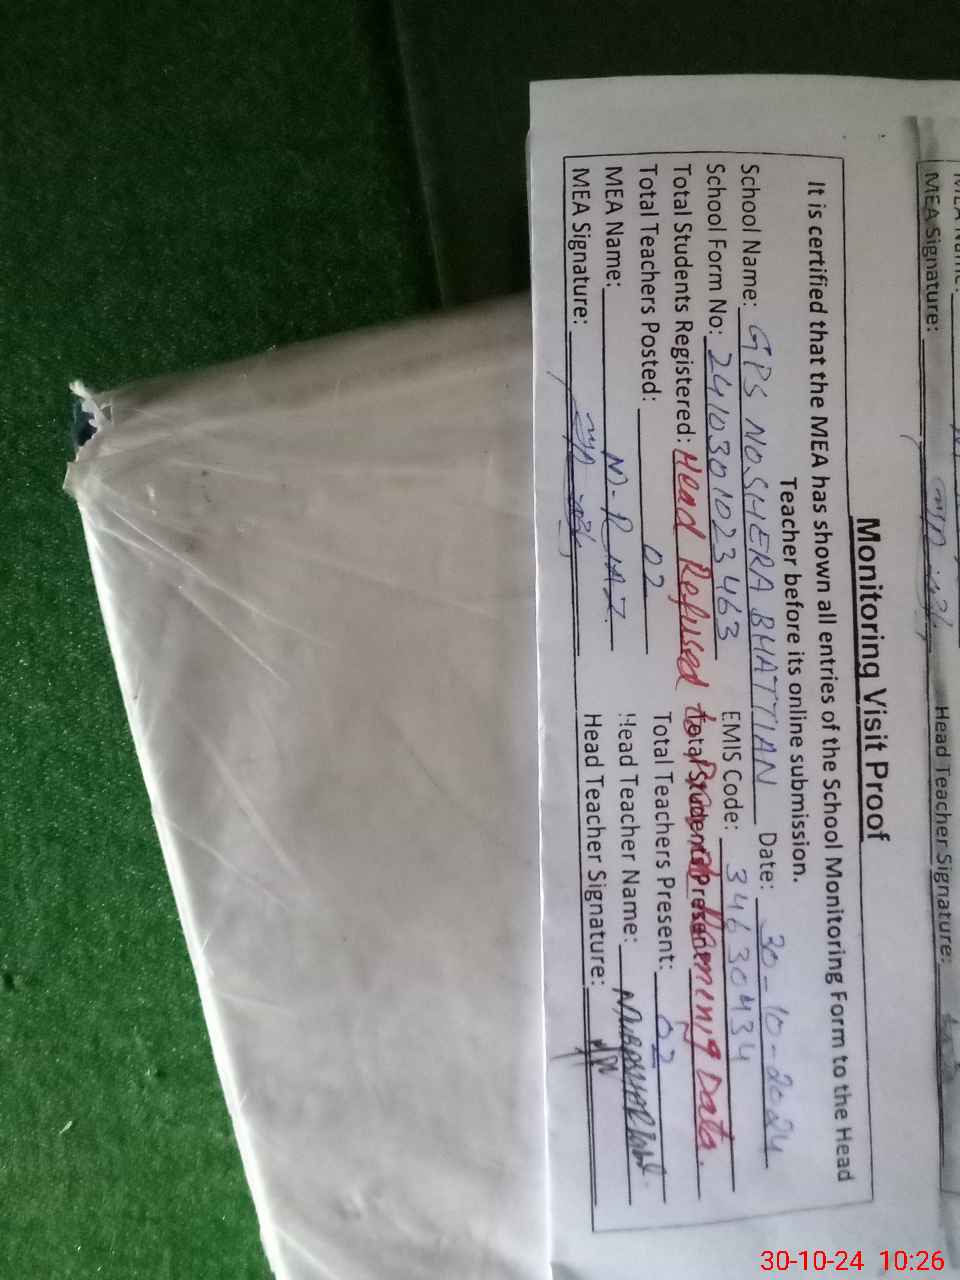 MEA Signature:
Head Teacher Signature:
Monitoring Visit Proof
It is certified that the MEA has shown all entries of the School Monitoring Form to the Head
Teacher before its online submission.
School Name: GPS NOSHERA BHATTIAN Date: 30-10-2024
School Form No: 2410301023463 EMIS Code: 34630434
Total Students Registered: Head Refused to Total Students Present: Data.
Total Teachers Posted: 02 Total Teachers Present: 02
MEA Name: M-RIAZ Head Teacher Name:
MEA Signature: Head Teacher Signature:
30-10-24 10:26